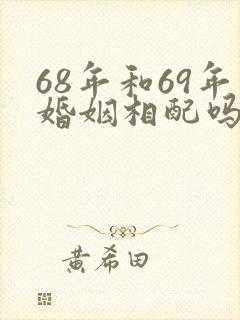 68年和69年
婚姻相配吗
黄希田